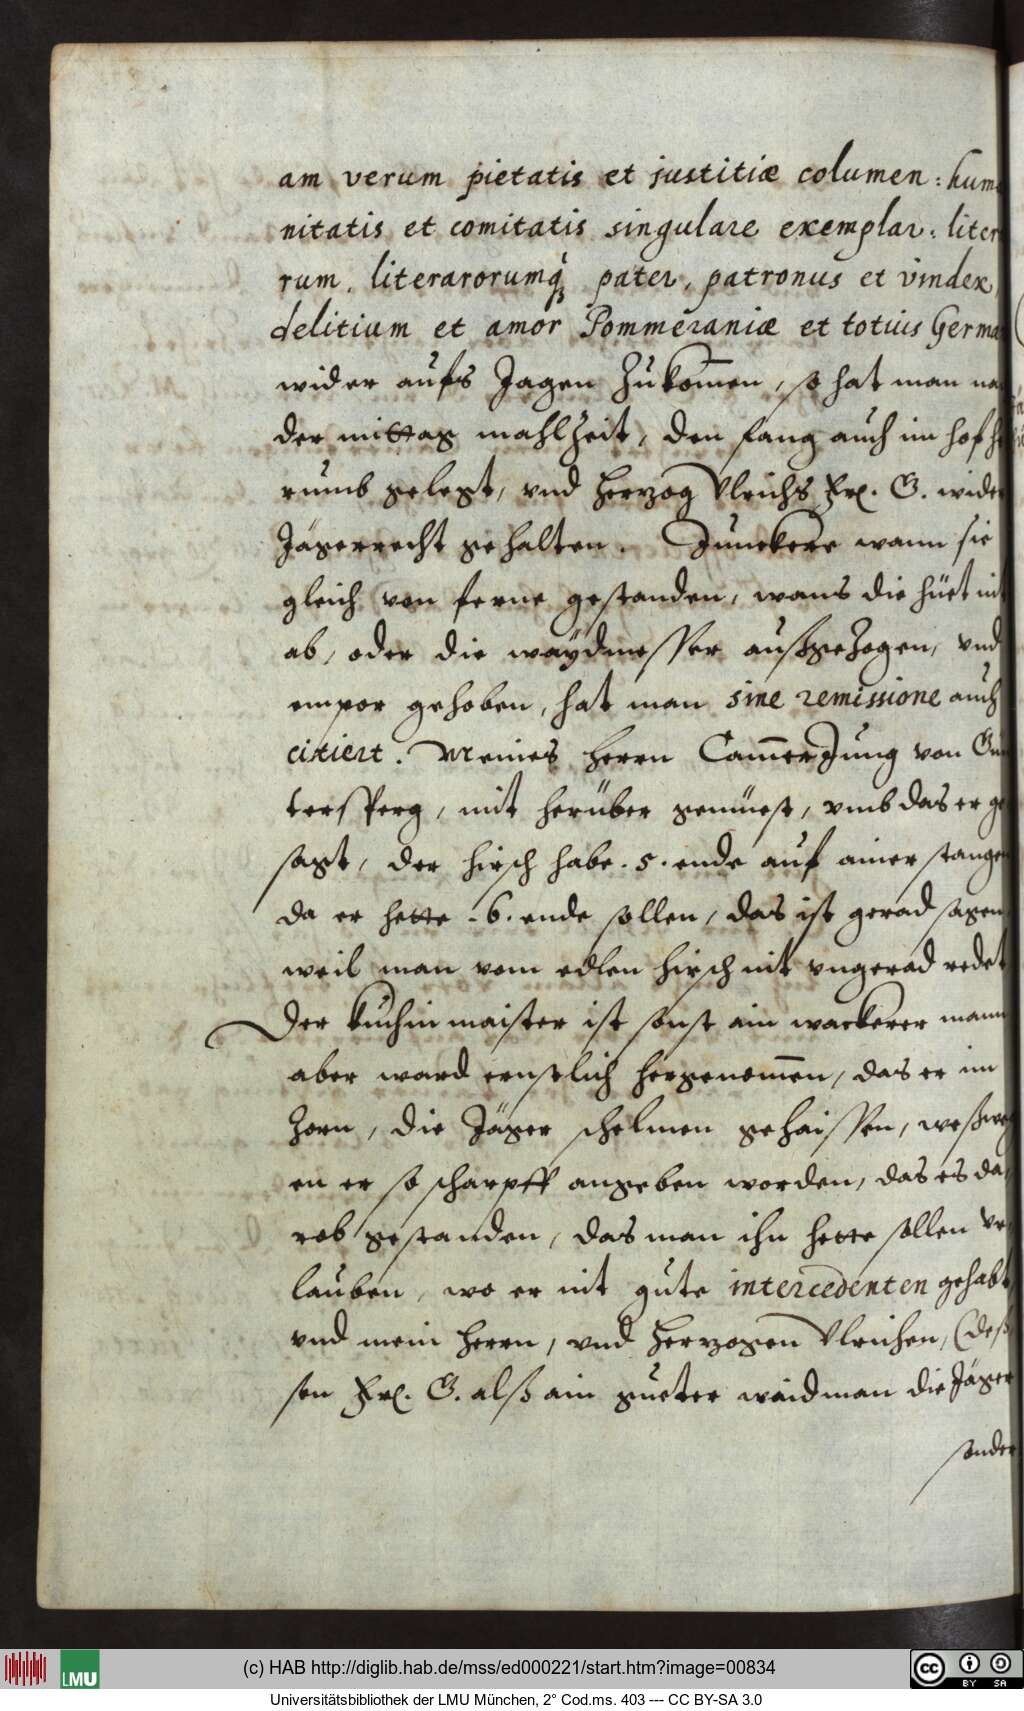 am verum pietatis et justitiæ columen: huma
nitatis et comitatis singulare exemplar: liter
rum, literarorumq́ pater, patronus et vindex,
delitium et amor Pommeraniæ et totius Germa
wider aufs Jagen zukom̄en, so hat man na
der mittag mahlzeit, den fang auch im hof he
rumb gelegt, vnd Herzog Vlrichs Frl. G. wider
Jägerrecht gehalten. Junckere wann sie
gleich von ferne gestanden, wans die hüet nit
ab, oder die waÿdmesser außgezogen, vnd
empor gehoben, hat man sine remissione auch
citiert. Meines Herrn Cam̄erJung von Gun
tersperg, mit herüber gemüest, vmb das er ge
sagt, der hirsch habe .5. ende auf ainer stangen
da er hette .6. ende sollen, das ist gerad sagen
weil man vom edlen hirsch nit vngerad redet
Der kuchinmaister ist sonst ain wackerer mann
aber ward ernstlich hergenom̄en, das er im
Zorn, die Jäger schelmen gehaissen, weßweg
en er so scharpff angeben worden, das es da
rob gestanden, das man ihn hette sollen vr
lauben, wo er nit gute intercedenten gehabt,
vnd mein Herrn, vnd Herzogen Vlrichen, (deß
sen Frl. G. alß ain gueter waidman die Jäger
sonder
(c) HAB http://diglib.hab.de/mss/ed000221/start.htm?image=00834
LMU
BY SA
Universitätsbibliothek der LMU München, 2° Cod.ms. 403 --- CC BY-SA 3.0